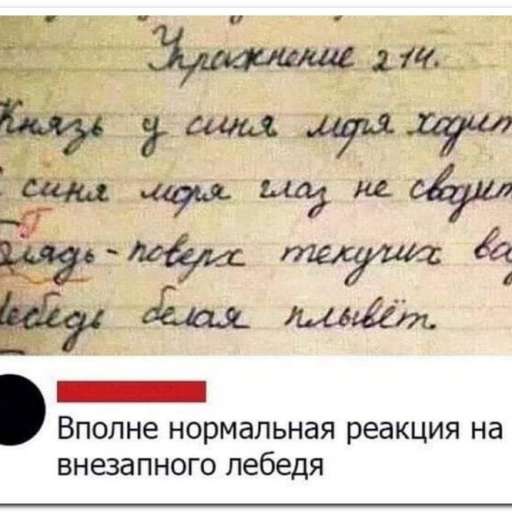 Упражнение 214.
Князь у синя моря ходит
С синя моря глаз не сводит
Блядь - поверх текучих во
Лебедь белая плывёт.
Вполне нормальная реакция на
внезапного лебедя